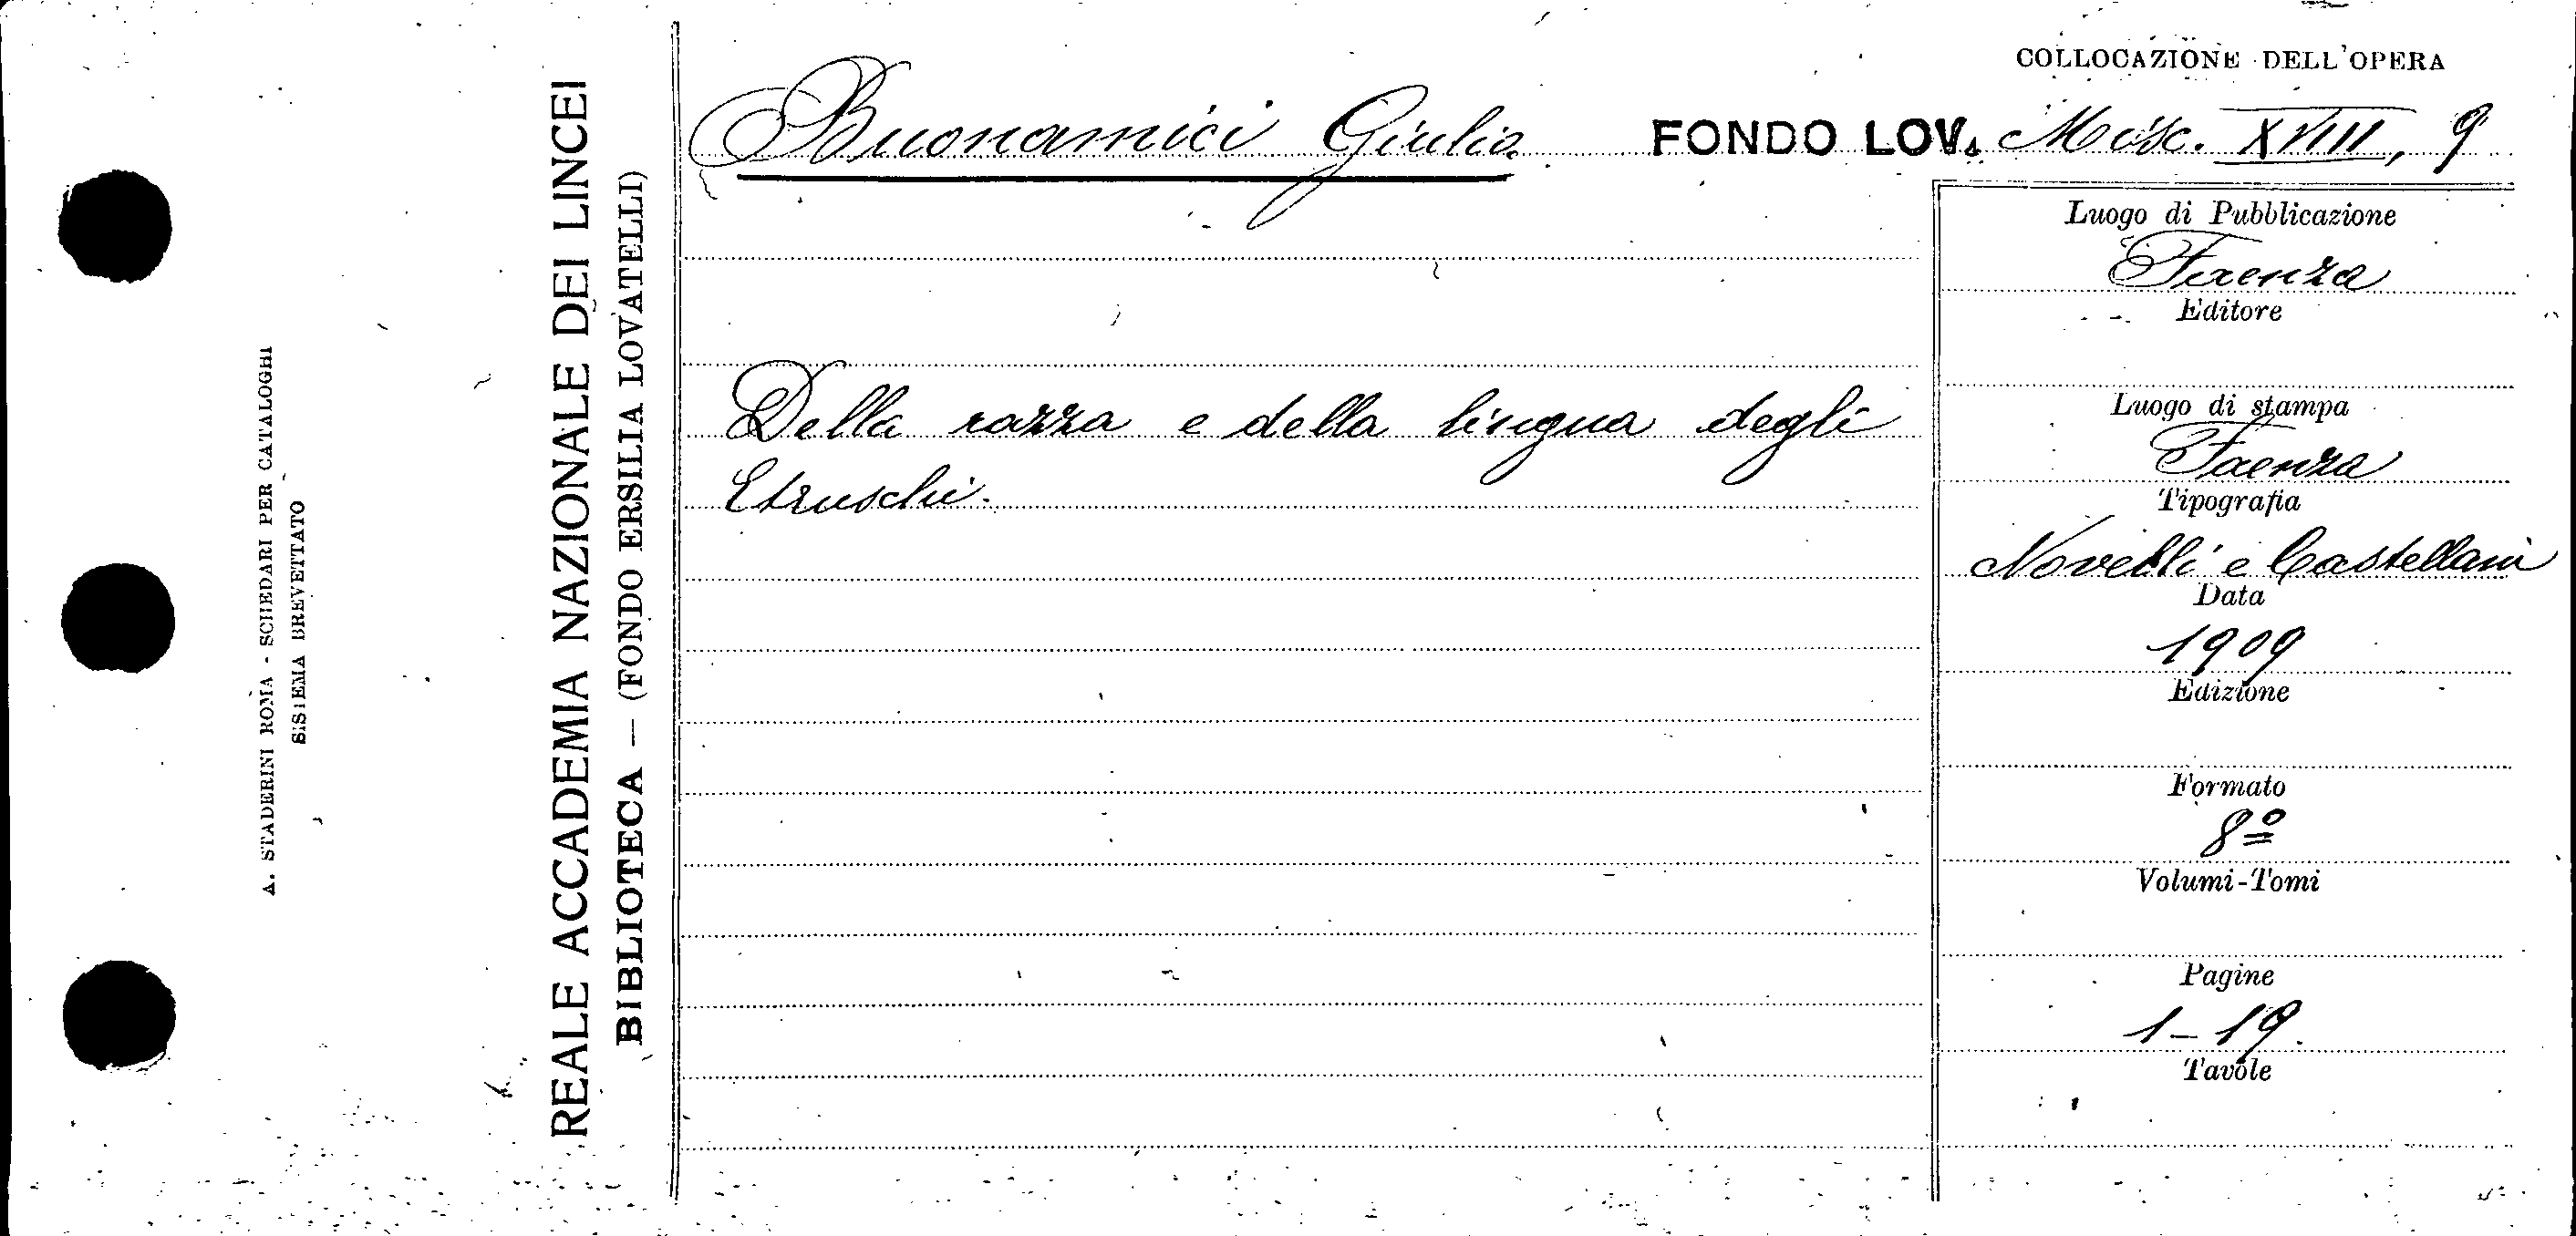 A. STADERINI ROMA - SCHEDARI PER CATALOGHI
SISTEMA BREVETTATO
REALE ACCADEMIA NAZIONALE DEI LINCEI
BIBLIOTECA — (FONDO ERSILIA LOVATELLI)
COLLOCAZIONE DELL'OPERA
Buonamici Giulio FONDO LOV. Misc. XVIII, 9
Della razza e della lingua degli
Etruschi.
Luogo di Pubblicazione
Faenza
Editore
Luogo di stampa
Faenza
Tipografia
Novelli e Castellani
Data
1909
Edizione
Formato
8º
Volumi-Tomi
Pagine
1-19.
Tavole